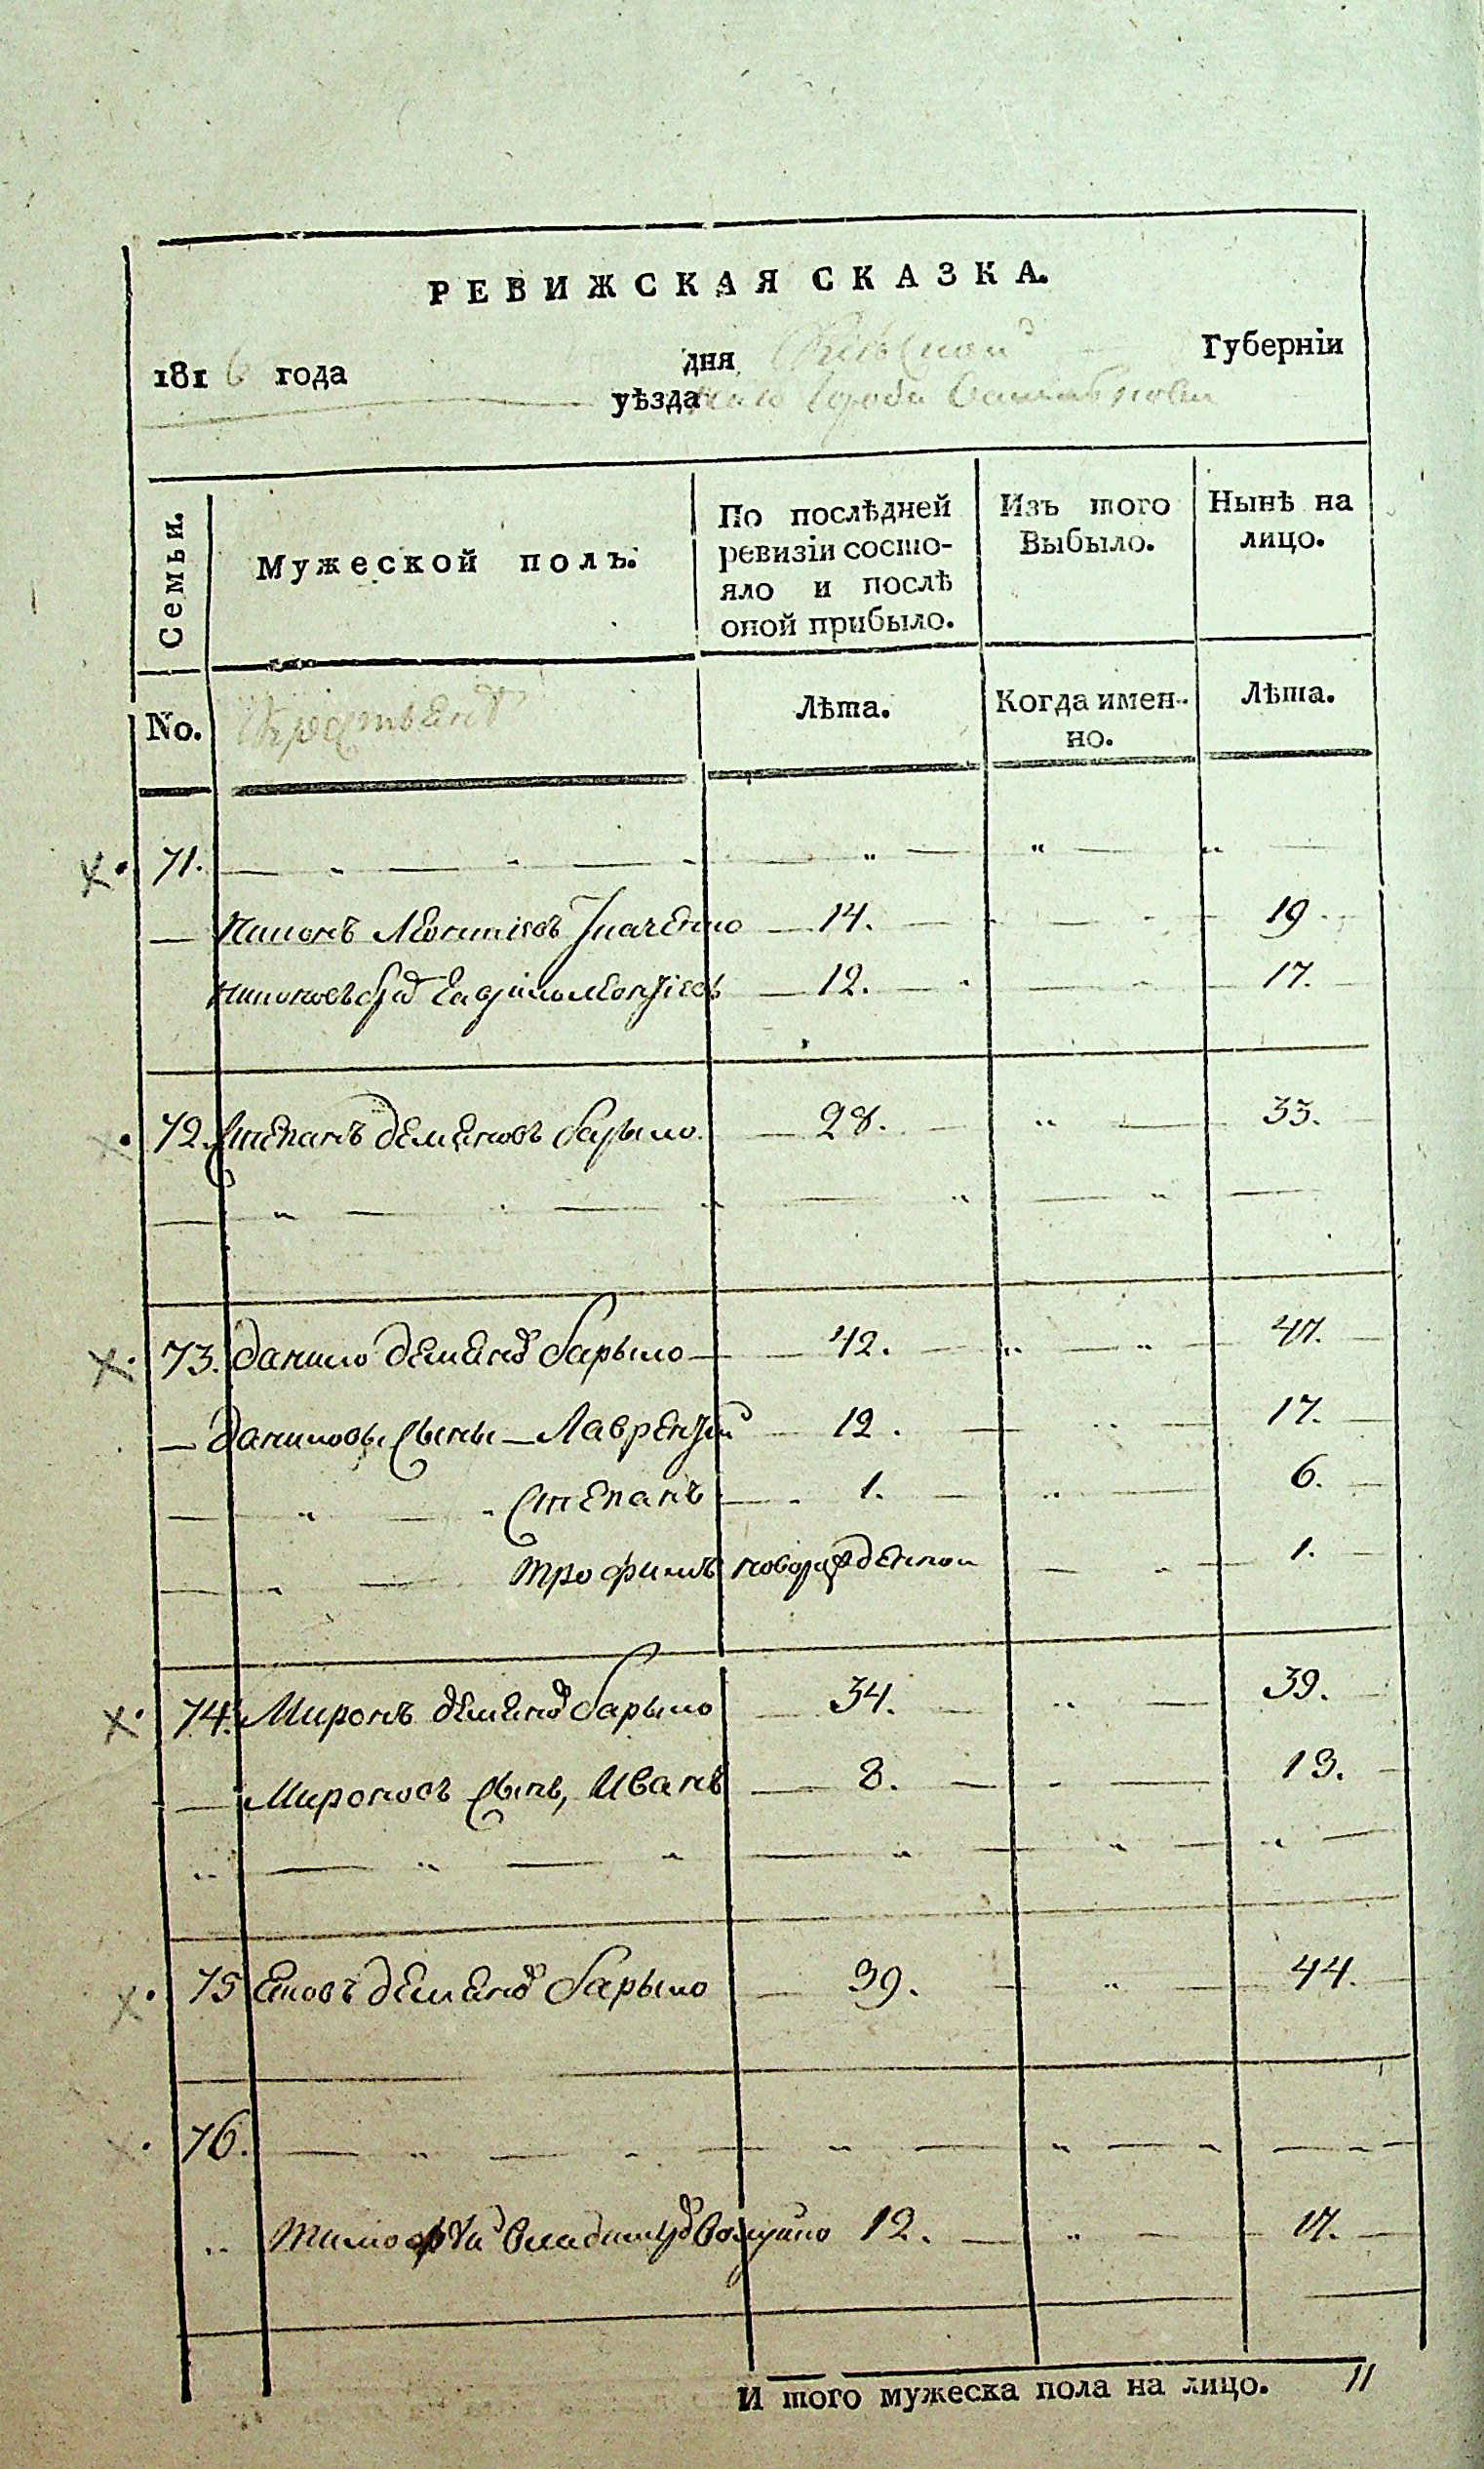 РЕВИЖСКАЯ СКАЗКА.
1816 года дня Кіевской Губерніи
уѣзда города
Семьи.
Мужеской полъ.
По послѣдней ревизіи состо-
яло и послѣ
оной прибыло.
Изъ того
Выбыло.
Нынѣ на
лицо.
No.
Крестьянъ
Лѣта.
Когда имен-
но.
Лѣта.
71.
Никонъ Леонтіевъ 14. 19
Никоновъ братъ Леонтіевъ 12. 17.
72. Степанъ Демяновъ Барыло 28. 33.
73. Данило Демяновъ Барыло 42. 47.
Даниловы Сыны Лаврентій 12. 17.
Степанъ 1. 6.
Трофимъ новорожденной 1.
74. Миронъ Демяновъ Барыло 34. 39.
Мироновъ Сынъ, Иванъ 8. 13.
75 Яковъ Демяновъ Барыло 39. 44.
76.
Тимофѣй 12. 17.
И того мужеска пола на лицо. 11